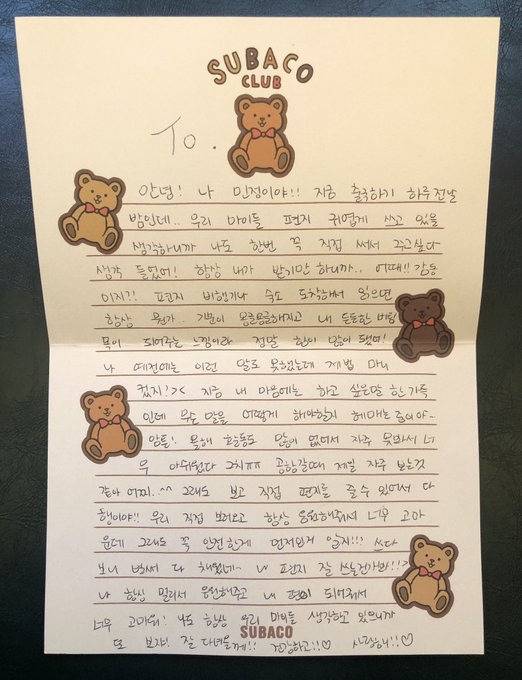 SUBACO
CLUB
To.
안녕! 나 민정이야!! 지금 출국하기 하루전날
밤인데.. 우리 마이들 편지 귀엽게 쓰고 있을
생각하니까 나도 한번 꼭 직접 써서 주고싶다
생각 들었어! 항상 내가 받기만 하니까.. 어때!! 감동
이지?! 편지 비행기나 숙소 도착해서 읽으면
항상 뭔가.. 기분이 몽글몽글해지고 내 든든한 버팀
목이 되어주는 느낌이라 정말 힘이 많이 됐어!
나 예전에는 이런 말도 못했는데 제법 마니
컸지!>< 지금 내 마음에는 하고 싶은말 한가득
인데 무슨 말을 어떻게 해야할지 헤매는 중이야~
암튼! 올해 활동도 많이 없어서 자주 못봐서 너
무 아쉬웠다 그치ㅠㅠ 공항갈때 제일 자주 보는것
같아 어찌..^^ 그래도 보고 직접 편지를 줄 수 있어서 다
행이야!! 우리 직접 보러오고 항상 응원해줘서 너무 고마
운데 그래도 꼭 안전한게 먼저인거 알지!!! 쓰다
보니 벌써 다 채웠네~ 나 편지 잘 쓰는건가봐!!>
나 항상 멀리서 응원해주고 내 편이 되어줘서
너무 고마워! 나도 항상 우리 마이들 생각하고 있으니까
또 보자! 잘 다녀올께!! 건강하고!!♡ 사랑해!!♡
SUBACO